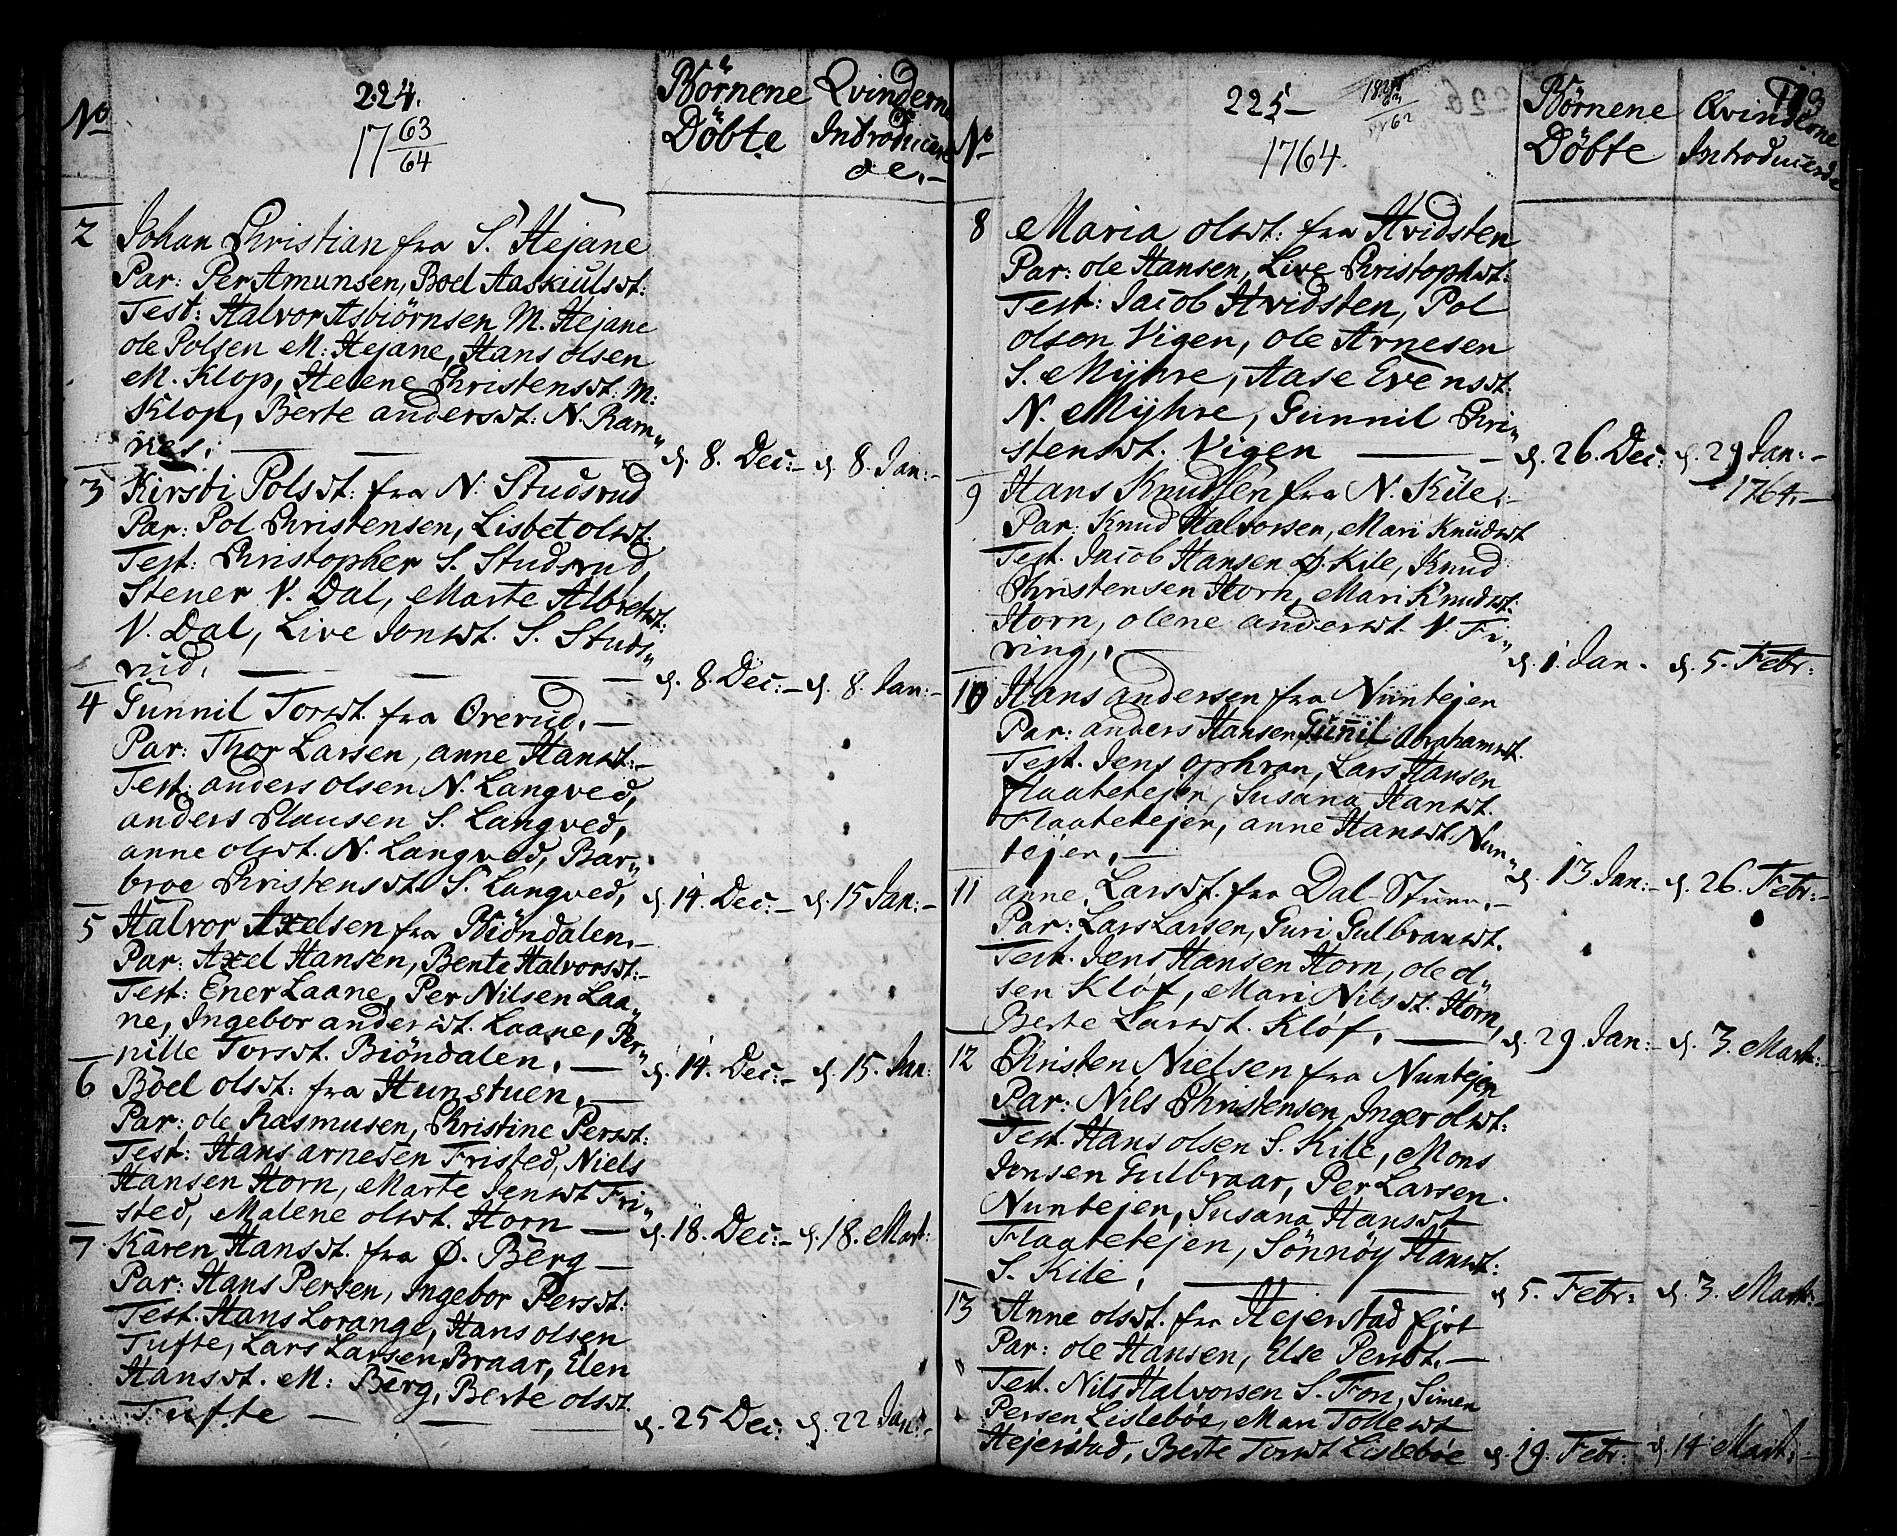 No
224.
17 63/64
Börnene
Döbte
Qvinderne
Introducere
de.-
2 Johan Christian fra S. Hejane
Par: Per Amunsen, Boel Aaskiulsdt:
Test: Halvor Asbiörnsen M. Hejane
ole Polsen M: Hejane, Hans olsen
M. Klop, Helene Christensdt: M:
Klop, Berte andersdt: N. Ram„
nes. d. 8. Dec:- d. 8. Jan:-
3 Kirsti Polsdt: fra N. Studsrud
Par: Pol Christensen, Lisbet olsdt:
Test: Christopher S. Studsrud
Stener V. Dal, Marte Albretsdt:
V. Dal, Live Jonsdt. S. Studs„
rud. d. 8. Dec:- d. 8. Jan:-
4 Gunnil Torsdt. fra Orerud.-
Par: Thor Larsen, anne Hansdt:-
Test: anders olsen N. Langved,
anders Clausen S. Langved,
anne olsdt. N. Langved, Bar„
broe Christensdt. S. Langved, d. 14. Dec:- d. 15 Jan:-
5 Halvor Axelsen fra Biöndalen.-
Par: Axel Hansen, Bente Halvorsdt:-
Test: Ener Laane, Per Nilsen Laa„
ne, Ingebor andersdt. Laane, Per„
nille Torsdt. Biöndalen. d. 14. Dec:- d. 15. Jan:
6 Böel olsdt: fra Hunstuen.-
Par: ole Rasmusen, Christine Persdt:
Test: Hans arnesen Fristed, Niels
Hansen Horn, Marte Jensdt Fri„
sted, Malene olsdt. Horn d. 18. Dec:- d. 18. Mart:
7 Karen Hansdt. fra Ø. Berg
Par: Hans Persen, Ingebor Persdt:
Test. Hans Lorange, Hans olsen
Tufte, Lars Larsen Braar, Elen
Hansdt. M: Berg, Berte olsdt.
Tufte d. 25 Dec: d. 22 Jan:-
No
225-
1764.
Börnene
Döbte
Qvinderne
Introducerde
8 Maria olsdt: fra Hvidsten
Par: ole Hansen, Live Christophsdt:
Test: Jacob Hvidsten, Pol
olson Vigen, ole Arnesen
S. Mÿhre, Aase Evensdt:
N. Mÿhre, Gunnil Chri„
stensdt. Vigen d. 26. Dec: d. 29 Jan:-
1764.-
9 Hans Knudsen fra N. Kile.-
Par: Knud Halvorsen, Mari Knudsdt
Test. Jacob Hansen Ø. Kile, Knud
Christensen Horn, Mari Knudsdt:
Horn, olene andersdt. V. Fi„
ring, d. 1. Jan. d. 5. Febr:
10 Hans andersen fra Nuntejen
Par: anders Hansen, Gunil Abrahamsdt.
Test. Jens ophran, Lars Hansen
Flaatetejen, Susana Hansdt.
Flaatetejen, anne Hansdt. Nun„
tejen.- d. 13 Jan:- d. 26. Febr:-
11 anne Larsdt. fra Dal-Stuen.-
Par: Lars Larsen, Guri Gulbransdt.
Test. Jens Hansen Horn, ole ol„
sen Klöf, Mari Nilsdt. Horn,
Berte Larsdt. Klöf. d. 29. Jan:- d. 3. Mart:-
12 Christen Nielsen fra Nuntejen
Par: Nils Christensen, Inger olsdt:
Test. Hans olsen S. Kile, Mons
Jensen Gulbraar, Per Larsen
Nuntejen, Susana Hansdt
Flaatetejen, Sönnöy Hansdt:
S. Kile. d. 5. Febr: d. 3. Mart:-
13 Anne olsdt. fra Hejerstad fjrt
Par: ole Hansen, Else Persdt.-
Test. Nils Halvorsen S. Fon, Simen
Persen Lislebøe, Mari Tollesdt
Hejerstad, Berte Torsdt Lislebøe d. 19. Febr: d. 14 Mart:-